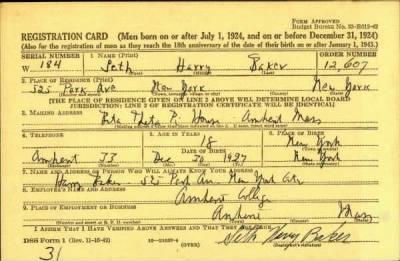 FORM APPROVED
Budget Bureau No. 33-R012-42
REGISTRATION CARD—(Men born on or after July 1, 1924, and on or before December 31, 1924)
(Also for the registration of men as they reach the 18th anniversary of the date of their birth on or after January 1, 1943.)
SERIAL NUMBER 1. NAME (Print) ORDER NUMBER
W 184 Seth Harry Baker 12,607
(First) (Middle) (Last)
2. PLACE OF RESIDENCE (Print)
525 Park Ave New York New York
(Number and street) (Town, township, village, or city) (County) (State)
[THE PLACE OF RESIDENCE GIVEN ON LINE 2 ABOVE WILL DETERMINE LOCAL BOARD
JURISDICTION; LINE 2 OF REGISTRATION CERTIFICATE WILL BE IDENTICAL]
3. MAILING ADDRESS
Beta Theta Pi House Amherst Mass
4. TELEPHONE 5. AGE IN YEARS 6. PLACE OF BIRTH
18 New York
DATE OF BIRTH
Amherst 33 Dec 30 1924 New York
7. NAME AND ADDRESS OF PERSON WHO WILL ALWAYS KNOW YOUR ADDRESS
Harry Baker 525 Park Ave. New York City
8. EMPLOYER'S NAME AND ADDRESS
Amherst College
9. PLACE OF EMPLOYMENT OR BUSINESS
Amherst Mass
(Number and street or R. F. D. number) (Town) (County) (State)
I AFFIRM THAT I HAVE VERIFIED ABOVE ANSWERS AND THAT THEY ARE TRUE.
DSS Form 1 (Rev. 11-16-42) (OVER) Seth Harry Baker
(Registrant's signature)
31